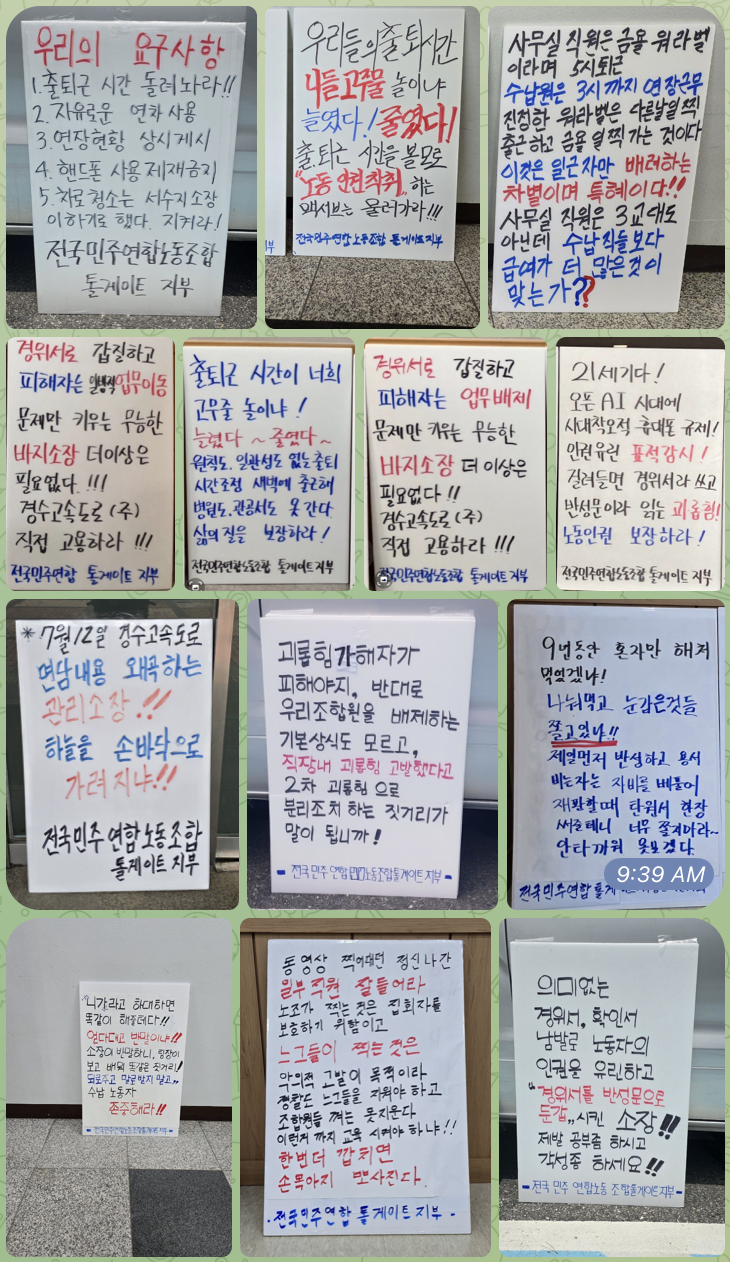 우리의 요구사항
1. 출퇴근 시간 돌려놔라!!
2. 자유로운 연차 사용
3. 연장현황 상시게시
4. 핸드폰 사용 제재금지
5. 차로청소는 서수지소장
이하기로 했다. 지켜라!
전국민주연합노동조합
톨게이트 지부
우리들의 출퇴시간
니들 고무줄 놀이냐
늘였다! 줄였다!
출,퇴근 시간을 볼모로
"노동 인권착취" 하는
맥서브는 물러가라!!!
전국민주연합 노동조합 톨게이트지부
부
사무실 직원은 금요 워라벨
이라며 5시퇴근
수납원은 3시까지 연장근무
진정한 워라벨은 다른날일찍
출근하고 금요일찍 가는 것이다
이것은 일근자만 배려하는
차별이며 특혜이다!!
사무실 직원은 3교대도
아닌데 수납직들보다
급여가 더 많은것이
맞는가??
경위서로 갑질하고
피해자는 업무이동
문제만 키우는 무능한
바지소장 더이상은
필요없다. !!!
경수고속도로(주)
직접 고용하라 !!!
전국민주연합 톨게이트 지부
출퇴근 시간이 너희
고무줄 놀이냐!
늘렸다 ~ 줄였다 ~
원칙도. 일관성도 없는 출퇴
시간조정 새벽에 출근해
병원도. 관공서도 못 간다
삶의질을 보장하라!
전국민주연합노동조합 톨게이트 지부
경위서로 갑질하고
피해자는 업무배제
문제만 키우는 무능한
바지소장 더 이상은
필요없다 !!
경수고속도로(주)
직접 고용하라 !!!
전국민주연합노동조합 톨게이트 지부
21세기다!
오픈 AI 시대에
시대착오적 휴대폰 규제!
인권유린 표적감시!
질려들면 경위서라 쓰고
반성문이라 읽는 괴롭힘!
노동인권 보장하라!
전국민주연합노동조합 톨게이트 지부
* 7월 12일 경수고속도로
면담내용 왜곡하는
관리소장!!
하늘을 손바닥으로
가려지냐!!
전국민주연합노동조합
톨게이트 지부
괴롭힘가해자가
피해야지, 반대로
우리조합원을 배제하는
기본상식도 모르고,
직장내 괴롭힘 고발했다고
2차 괴롭힘으로
분리조치 하는 짓거리가
말이 됩니까!
- 전국민주연합노동조합톨게이트지부 -
9년동안 혼자만 해쳐
먹었겠냐!
나눠먹고 눈감은것들
쫄고있냐!!
제일먼저 반성하고 용서
비는자는 자비를 베풀어
재판할때 탄원서 한장
써줄테니 너무 쫄지마라~
안타까워 못보겠다.
전국민주연합 톨게
9:39 AM
"니가라고 하대하면
똑같이 해줄테다!!
얻다대고 반말이냐!!
소장이 반말하니, 팀장이
보고 배워 똑같은 짓거리!
되로주고 말로받지 말고,,
수납 노동자
존중해라!!
- 전국민주연합노동조합톨게이트지부 -
동영상 찍어대던 정신나간
일부직원 잘들어라
노조가 찍는것은 집회자를
보호하기 위함이고
느그들이 찍는것은
악의적 고발이 목적이라
경찰도 느그들을 지워야 하고
조합원들 꺼는 못지운다
이런거 까지 교육 시켜야 하냐!!
한번더 깝치면
손목아지 뽀사진다.
- 전국민주연합노동조합 톨게이트 지부 -
의미없는
경위서, 확인서
남발로 노동자의
인권을 유린하고
"경위서를 반성문으로
둔갑,, 시킨 소장!!
제발 공부좀 하시고
각성좀 하세요!!
- 전국민주연합노동조합톨게이트지부 -